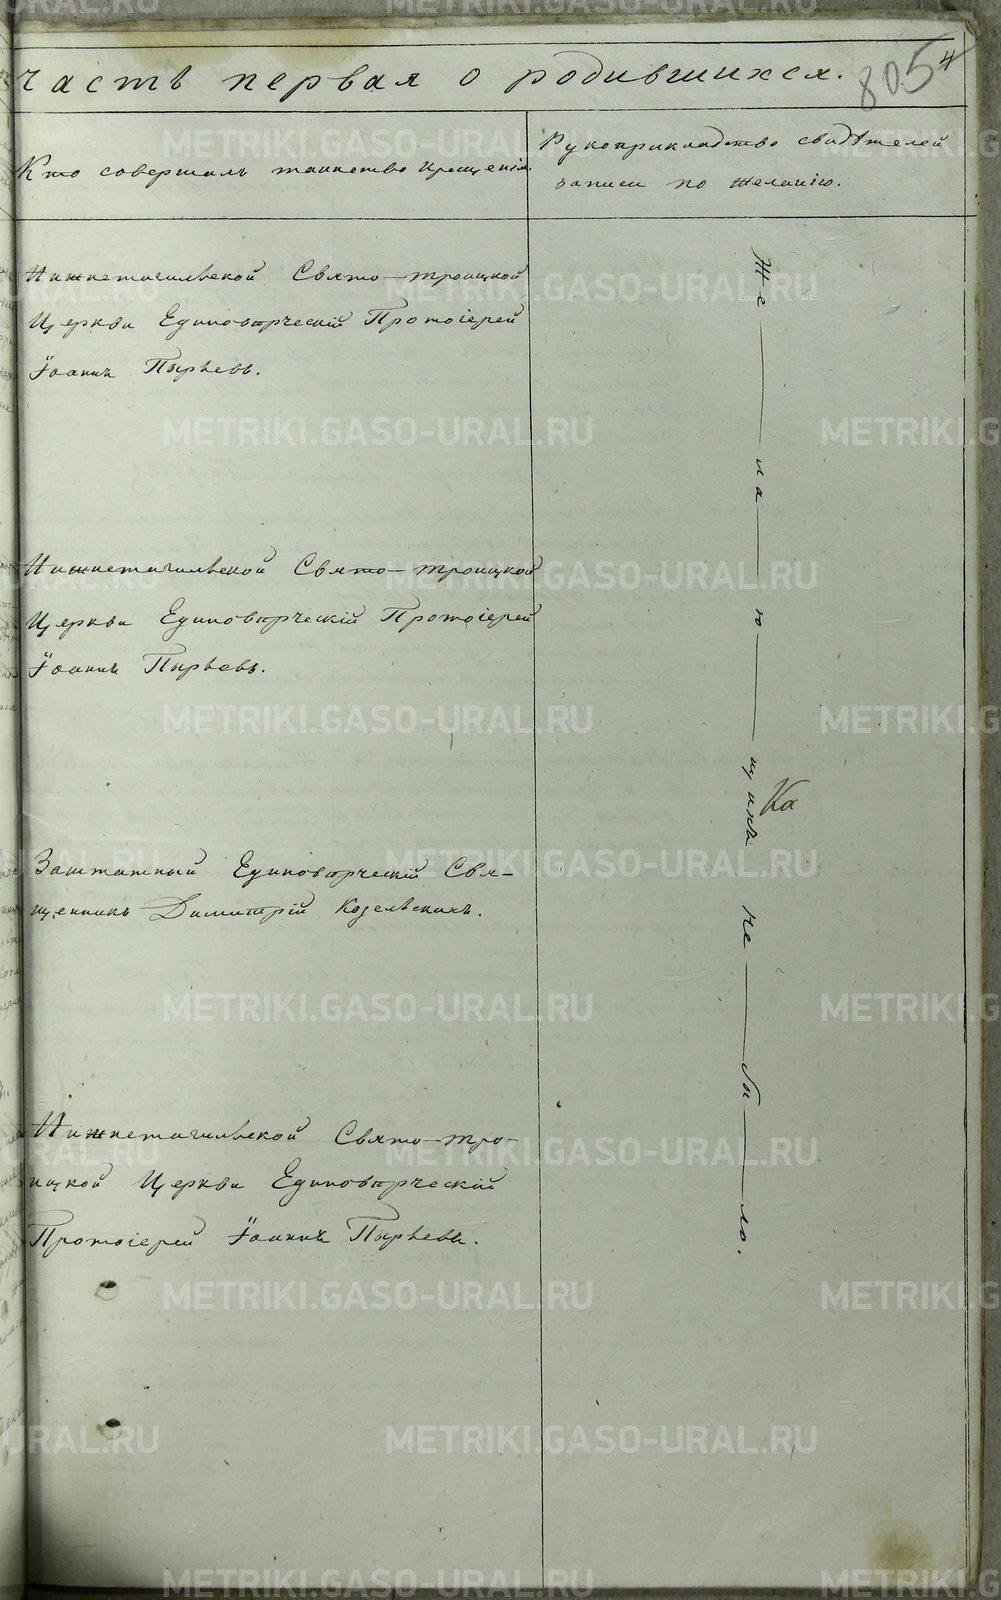 часть первая о родившихся.
805 4
Кто совершалъ таинство крещенія.
Рукоприкладство свидѣтелей
записи по желанію.
Нижнетагильской Свято-троицкой
Церкви Единовѣрческій Протоіерей
Іоаннъ Пырьевъ.
Нижнетагильской Свято-троицкой
Церкви Единовѣрческій Протоіерей
Іоаннъ Пырьевъ.
Заштатный Единовѣрческій Свя-
щенникъ Димитрій Козельскихъ.
Нижнетагильской Свято-тро-
ицкой Церкви Единовѣрческій
Протоіерей Іоаннъ Пырьевъ.
Же-ла-ю-щихъ не-бы-ло.
Ка
METRIKI.GASO-URAL.RU